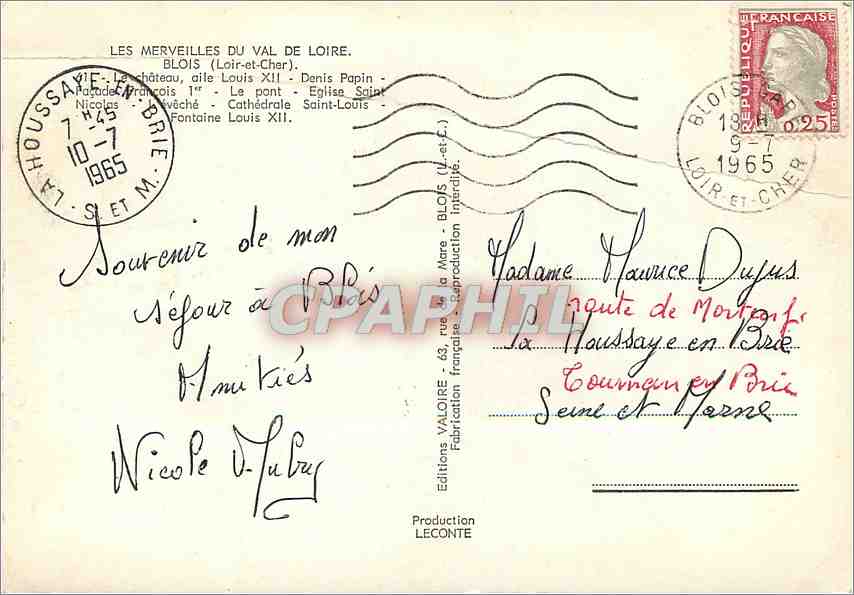 LES MERVEILLES DU VAL DE LOIRE.
BLOIS (Loir-et-Cher).
Le château, aile Louis XII - Denis Papin -
Façade François 1er - Le pont - Eglise Saint
Nicolas - Evêché - Cathédrale Saint-Louis -
Fontaine Louis XII.
LA HOUSSAYE-EN-BRIE
7 H 45
10-7
1965
S. ET M.
RÉPUBLIQUE FRANÇAISE
POSTES
0.25
BLOIS GARE
9-7
1965
LOIR-ET-CHER
Souvenir de mon
séjour à Blois
Amitiés
Nicole
CPAPHIL
Editions VALOIRE - 63, rue de la Mare - BLOIS (L.-et-C.)
Fabrication française - Reproduction interdite.
Production
LECONTE
Madame Maurice
route de
La Houssaye en Brie
Tournan en Brie
Seine et Marne